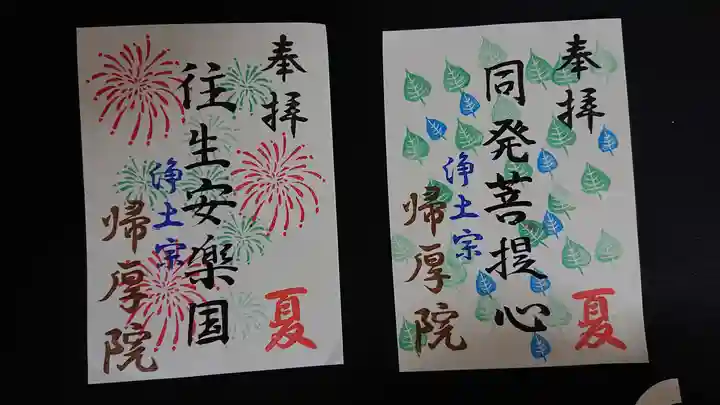 奉拝
往生安楽国
浄土宗
帰厚院
夏
奉拝
同発菩提心
浄土宗
帰厚院
夏